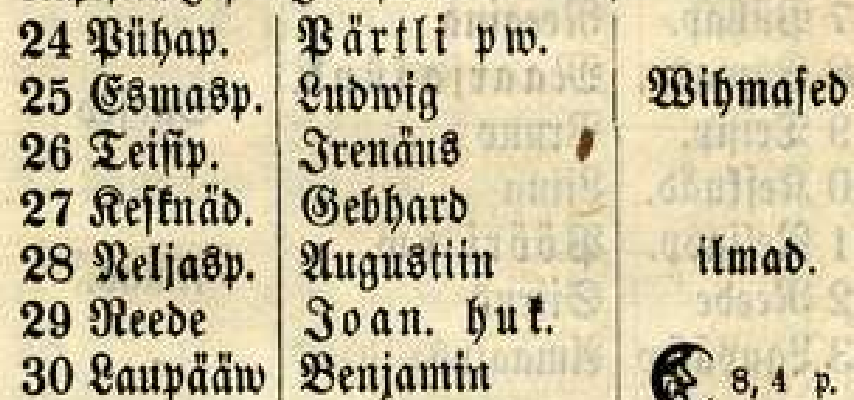 24 Pühap. Pärtli pw.
25 Esmasp. Ludwig Wihmased
26 Teisip. Irenäus
27 Kesknäd. Gebhard
28 Neljasp. Augustiin ilmad.
29 Reede Joan. huk.
30 Laupääw Benjamin 8, 4 p.